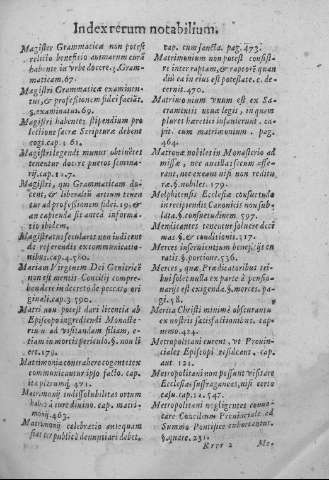 Index rerum notabilium.
Magister Grammaticæ non potest
relicto beneficio animarum cura
habente in vrbe docere. §. Gram-
maticam. 67.
Magistri Grammaticæ examinen-
tur, & professionem fidei faciāt,
§. examinentur. 19.
Magistri habentes stipendium pro
lectione sacræ Scripturæ debent
cogi. cap. 1 61.
Magistri legendi munus obeuntes
tenentur docere pueros semina-
rij. cap. 12.7.
Magistri, qui Grammaticam do-
cent, & liberales artium tenen
tur ad professionem fidei. 19. &
an capienda sit antea informa-
tio ibidem.
Magistratus seculares non iudicent
de referendis excommunicatio-
nibus. cap. 4.580.
Mariam Virginem Dei Genitricē
non est mentis Concilij compre-
hendere in decreto de peccato ori
ginali. cap. 3.590.
Matri non potest dari licentia ab
Episcopo ingrediendi Monaste-
rium ad visitandam filiam, e-
tiam in mortis periculo. §. non li
cere. 179.
Matrimonia contrahere cogentes ex
communicantur ipso facto. cap.
cap. 471.
Matrimonij indissolubilitas ortum
habet à iure diuino. cap. matri-
monij. 463.
Matrimonij celebratio antequam
fiat ter publicè denuntiari debet.
cap. cum sancta. pag. 473.
Matrimonium non potest consiste-
re inter raptam, & raptorē quan
diù ea in eius est potestate. c. de-
cernit. 470.
Matrimonium vnum est ex Sa-
cramentis nouæ legis, in quem
plures hæretici insanierunt. ca-
pit. cum matrimonium. pag.
464.
Matronæ nobiles in Monasterio ad
missæ, nec ancillas secum affe-
rant, nec exeant nisi non reditu
ræ. §. nobiles. 179.
Melphitensis Ecclesiæ consuetudo
in recipiendis Canonicis non sub-
lata. §. consuetudinem. 597.
Mendicantes tenentur soluere deci
mas. §. & conditionis. 217.
Merces inseruientium beneficijs en
ratis. §. portione. 536.
Merces, quæ Prædicatoribus tri-
bui solet nulla ex parte à pensio-
narijs est exigenda. §. merces. pa-
gi. 48.
Merita Christi minimè obscurantur
ex nostris satisfactionibus. cap.
nemp. 424.
Metropolitani curent, vt Prouin-
ciales Episcopi resideant. cap.
aut. 121.
Metropolitani non possunt visitare
Ecclesias suffraganeas, nisi certo
casu. cap. 12.541.
Metropolitani negligentes conuo-
care Concilium Prouinciale ad
Summo Pontifice subeantur.
§. quare. 231.
Rrrr 2
Me-